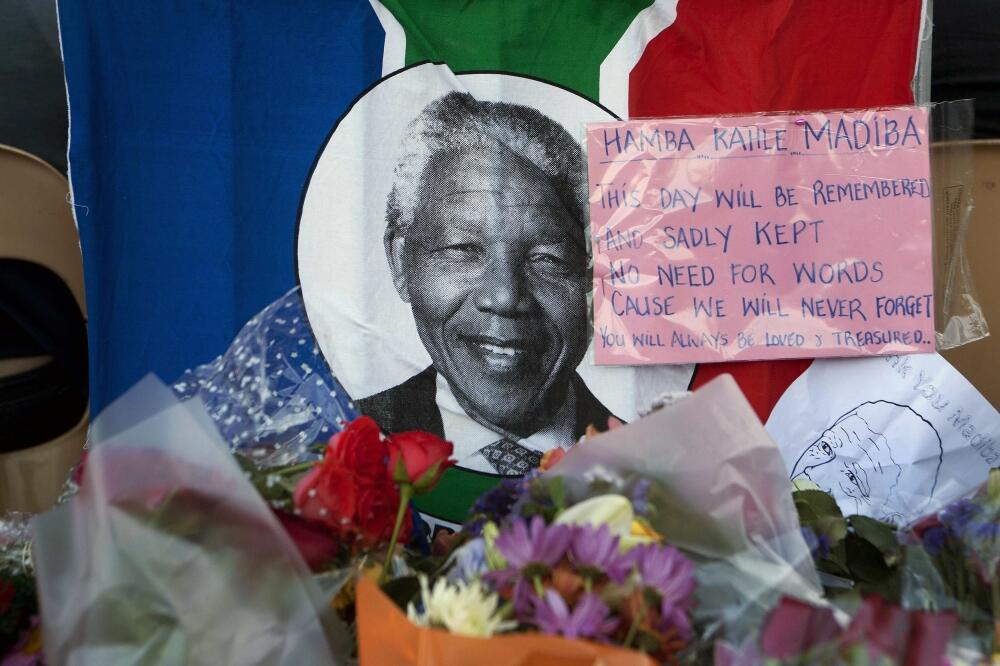 HAMBA KAHLE MADIBA
THIS DAY WILL BE REMEMBERED
AND SADLY KEPT
NO NEED FOR WORDS
'CAUSE WE WILL NEVER FORGET
YOU WILL ALWAYS BE LOVED & TREASURED..
You Madiba